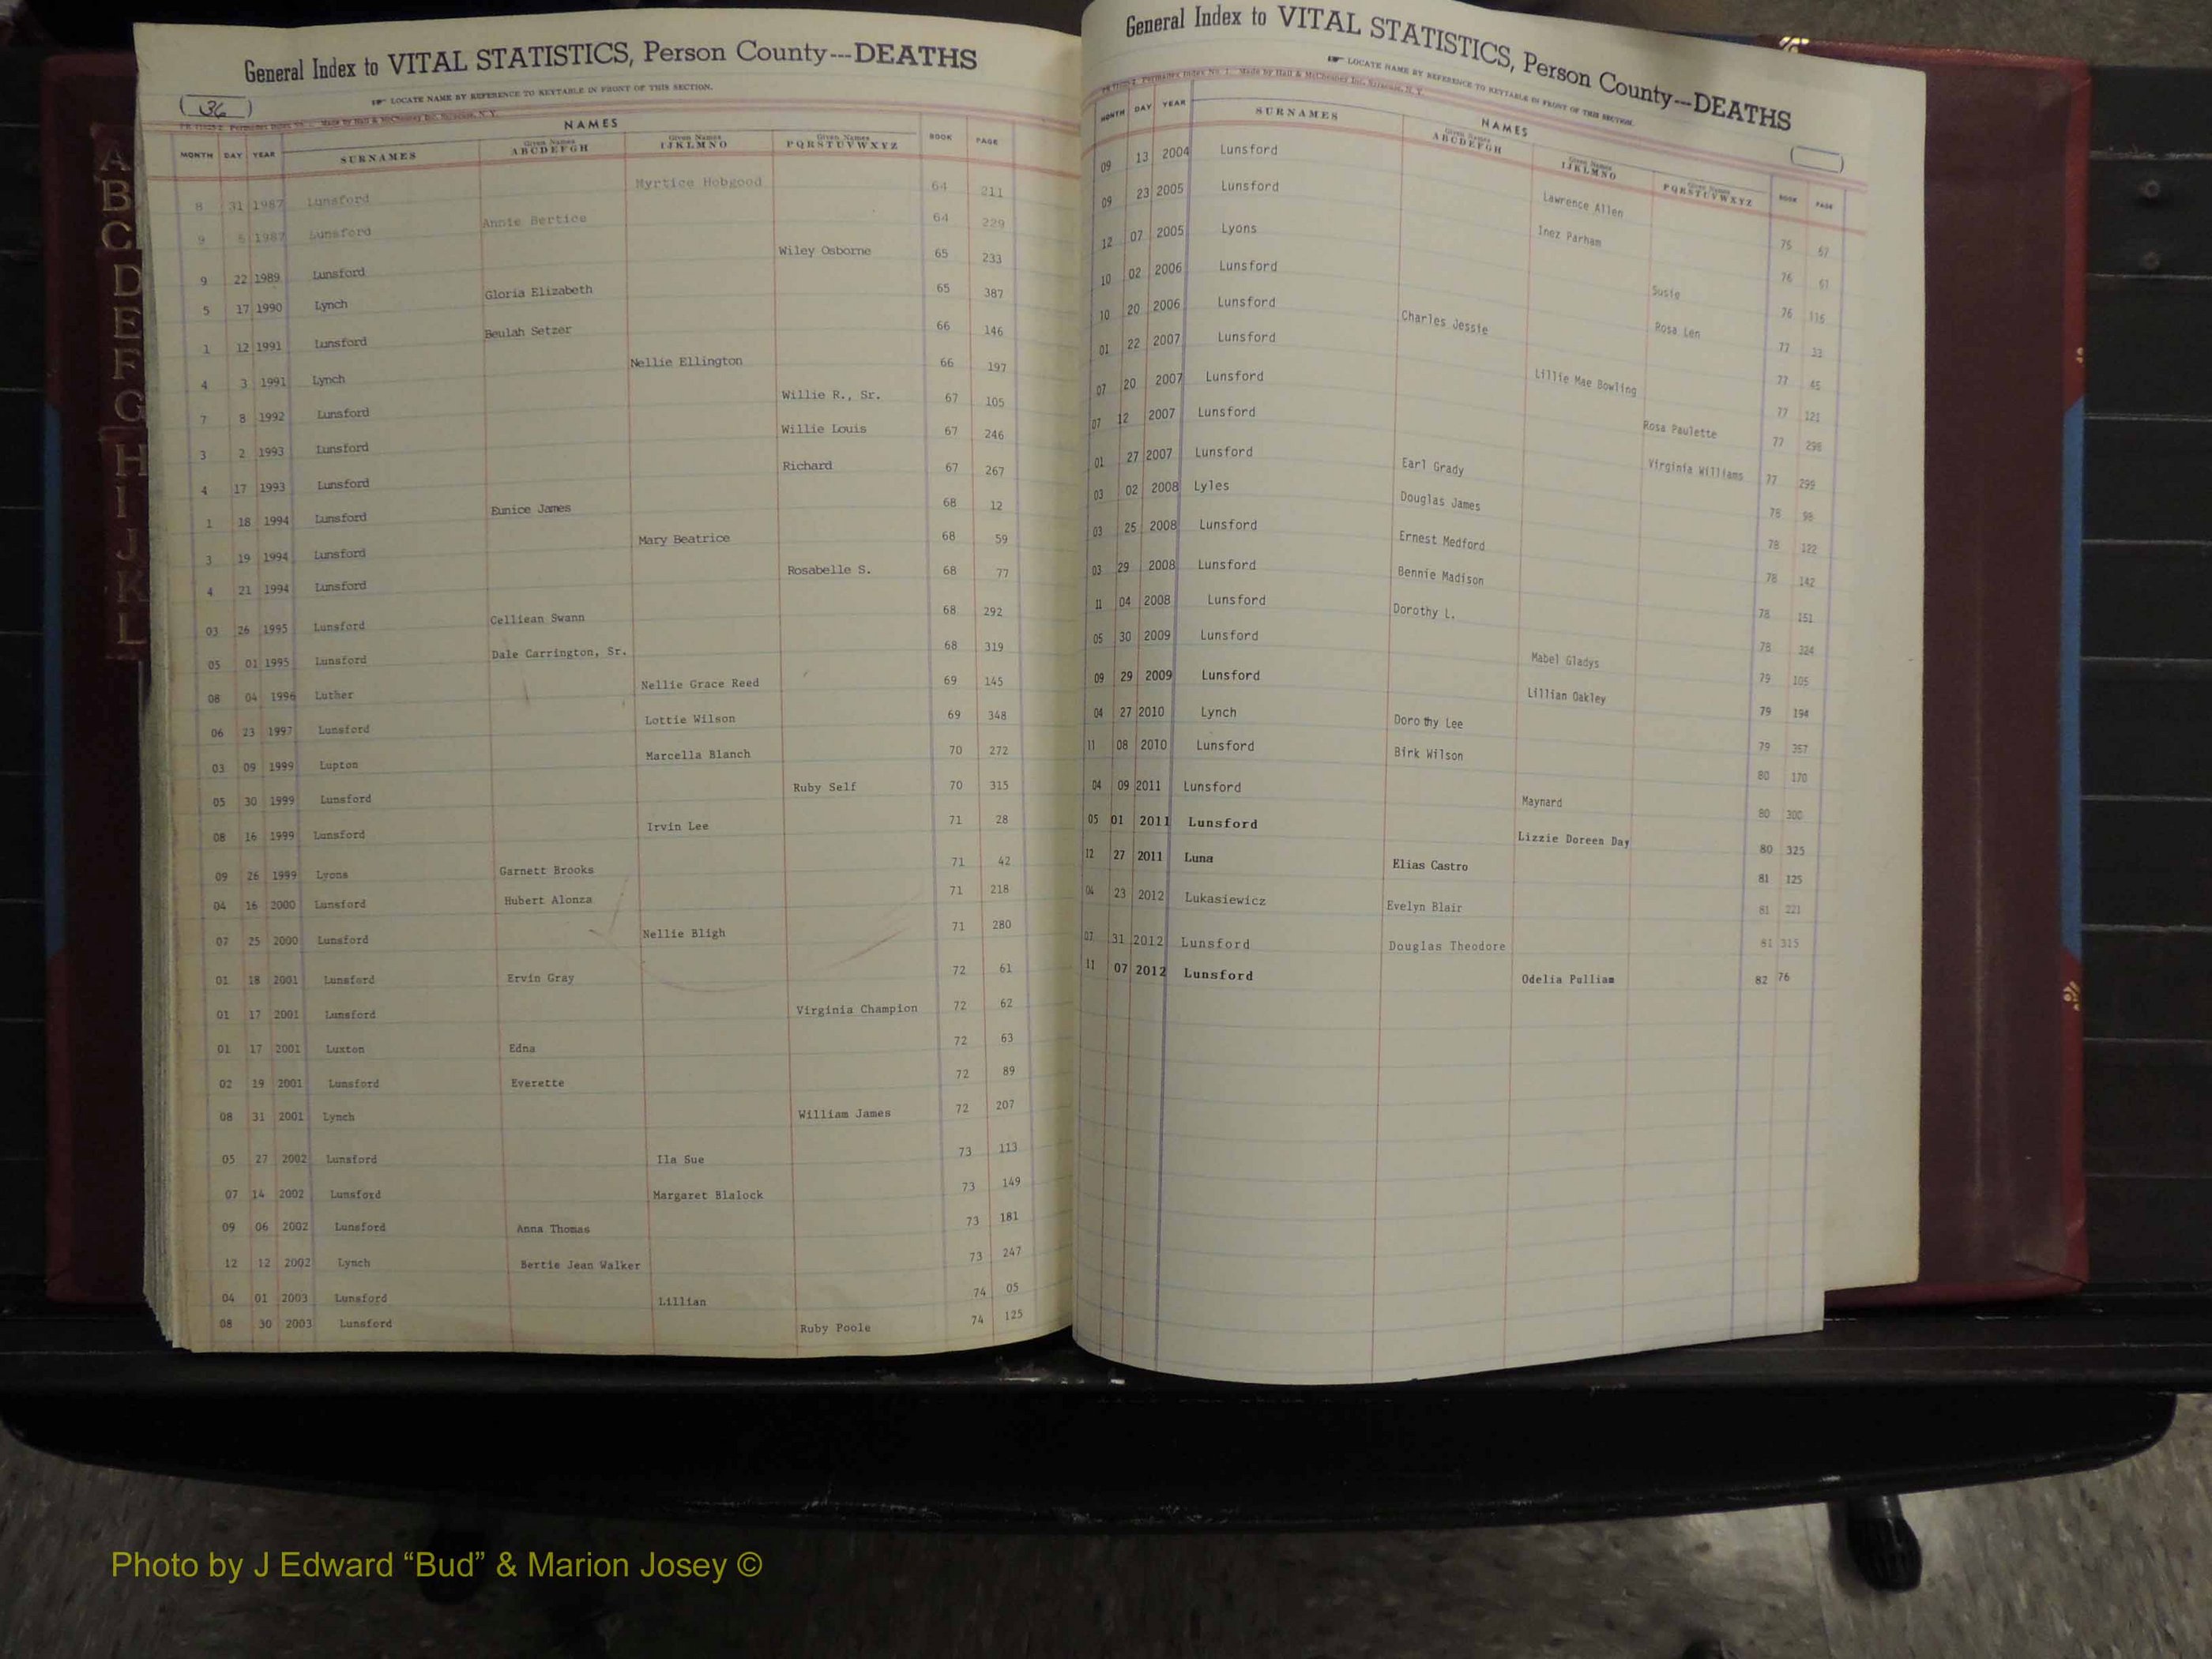 General Index to VITAL STATISTICS, Person County---DEATHS
LOCATE NAME BY REFERENCE TO KEYTABLE IN FRONT OF THIS SECTION.
36
NAMES
MONTH DAY YEAR SURNAMES Given Names ABCDEFGH Given Names IJKLMNO Given Names PQRSTUVWXYZ BOOK PAGE
8 31 1987 Lunsford Myrtice Hobgood 64 211
9 5 1987 Lunsford Annie Bertice 64 229
9 22 1989 Lunsford Wiley Osborne 65 233
5 17 1990 Lynch Gloria Elizabeth 65 387
1 12 1991 Lunsford Beulah Setzer 66 146
4 3 1991 Lynch Nellie Ellington 66 197
7 8 1992 Lunsford Willie R., Sr. 67 105
3 2 1993 Lunsford Willie Louis 67 246
4 17 1993 Lunsford Richard 67 267
1 18 1994 Lunsford Eunice James 68 12
3 19 1994 Lunsford Mary Beatrice 68 59
4 21 1994 Lunsford Rosabelle S. 68 77
03 26 1995 Lunsford Celliean Swann 68 292
05 01 1995 Lunsford Dale Carrington, Sr. 68 319
08 04 1996 Luther Nellie Grace Reed 69 145
06 23 1997 Lunsford Lottie Wilson 69 348
03 09 1999 Lupton Marcella Blanch 70 272
05 30 1999 Lunsford Ruby Self 70 315
08 16 1999 Lunsford Irvin Lee 71 28
09 26 1999 Lyons Garnett Brooks 71 42
04 16 2000 Lunsford Hubert Alonza 71 218
07 25 2000 Lunsford Nellie Bligh 71 280
01 18 2001 Lunsford Ervin Gray 72 61
01 17 2001 Lunsford Virginia Champion 72 62
01 17 2001 Luxton Edna 72 63
02 19 2001 Lunsford Everette 72 89
08 31 2001 Lynch William James 72 207
05 27 2002 Lunsford Ila Sue 73 113
07 14 2002 Lunsford Margaret Blalock 73 149
09 06 2002 Lunsford Anna Thomas 73 181
12 12 2002 Lynch Bertie Jean Walker 73 247
04 01 2003 Lunsford Lillian 74 05
08 30 2003 Lunsford Ruby Poole 74 125
General Index to VITAL STATISTICS, Person County---DEATHS
LOCATE NAME BY REFERENCE TO KEYTABLE IN FRONT OF THIS SECTION.
NAMES
MONTH DAY YEAR SURNAMES Given Names ABCDEFGH Given Names IJKLMNO Given Names PQRSTUVWXYZ BOOK PAGE
09 13 2004 Lunsford Lawrence Allen 75 67
09 23 2005 Lunsford Inez Parham 76 61
12 07 2005 Lyons Susie 76 116
10 02 2006 Lunsford Rosa Len 77 33
10 20 2006 Lunsford Charles Jessie 77 45
01 22 2007 Lunsford Lillie Mae Bowling 77 121
07 20 2007 Lunsford Rosa Paulette 77 298
07 12 2007 Lunsford Virginia Williams 77 299
01 27 2007 Lunsford Earl Grady 78 98
03 02 2008 Lyles Douglas James 78 122
03 25 2008 Lunsford Ernest Medford 78 142
03 29 2008 Lunsford Bennie Madison 78 151
11 04 2008 Lunsford Dorothy L. 78 324
05 30 2009 Lunsford Mabel Gladys 79 105
09 29 2009 Lunsford Lillian Oakley 79 194
04 27 2010 Lynch Dorothy Lee 79 357
11 08 2010 Lunsford Birk Wilson 80 170
04 09 2011 Lunsford Maynard 80 300
05 01 2011 Lunsford Lizzie Doreen Day 80 325
12 27 2011 Luna Elias Castro 81 125
04 23 2012 Lukasiewicz Evelyn Blair 81 221
07 31 2012 Lunsford Douglas Theodore 81 315
11 07 2012 Lunsford Odelia Pulliam 82 76
A
B
C
D
E
F
G
H
I
J
K
L
Photo by J Edward “Bud” & Marion Josey ©